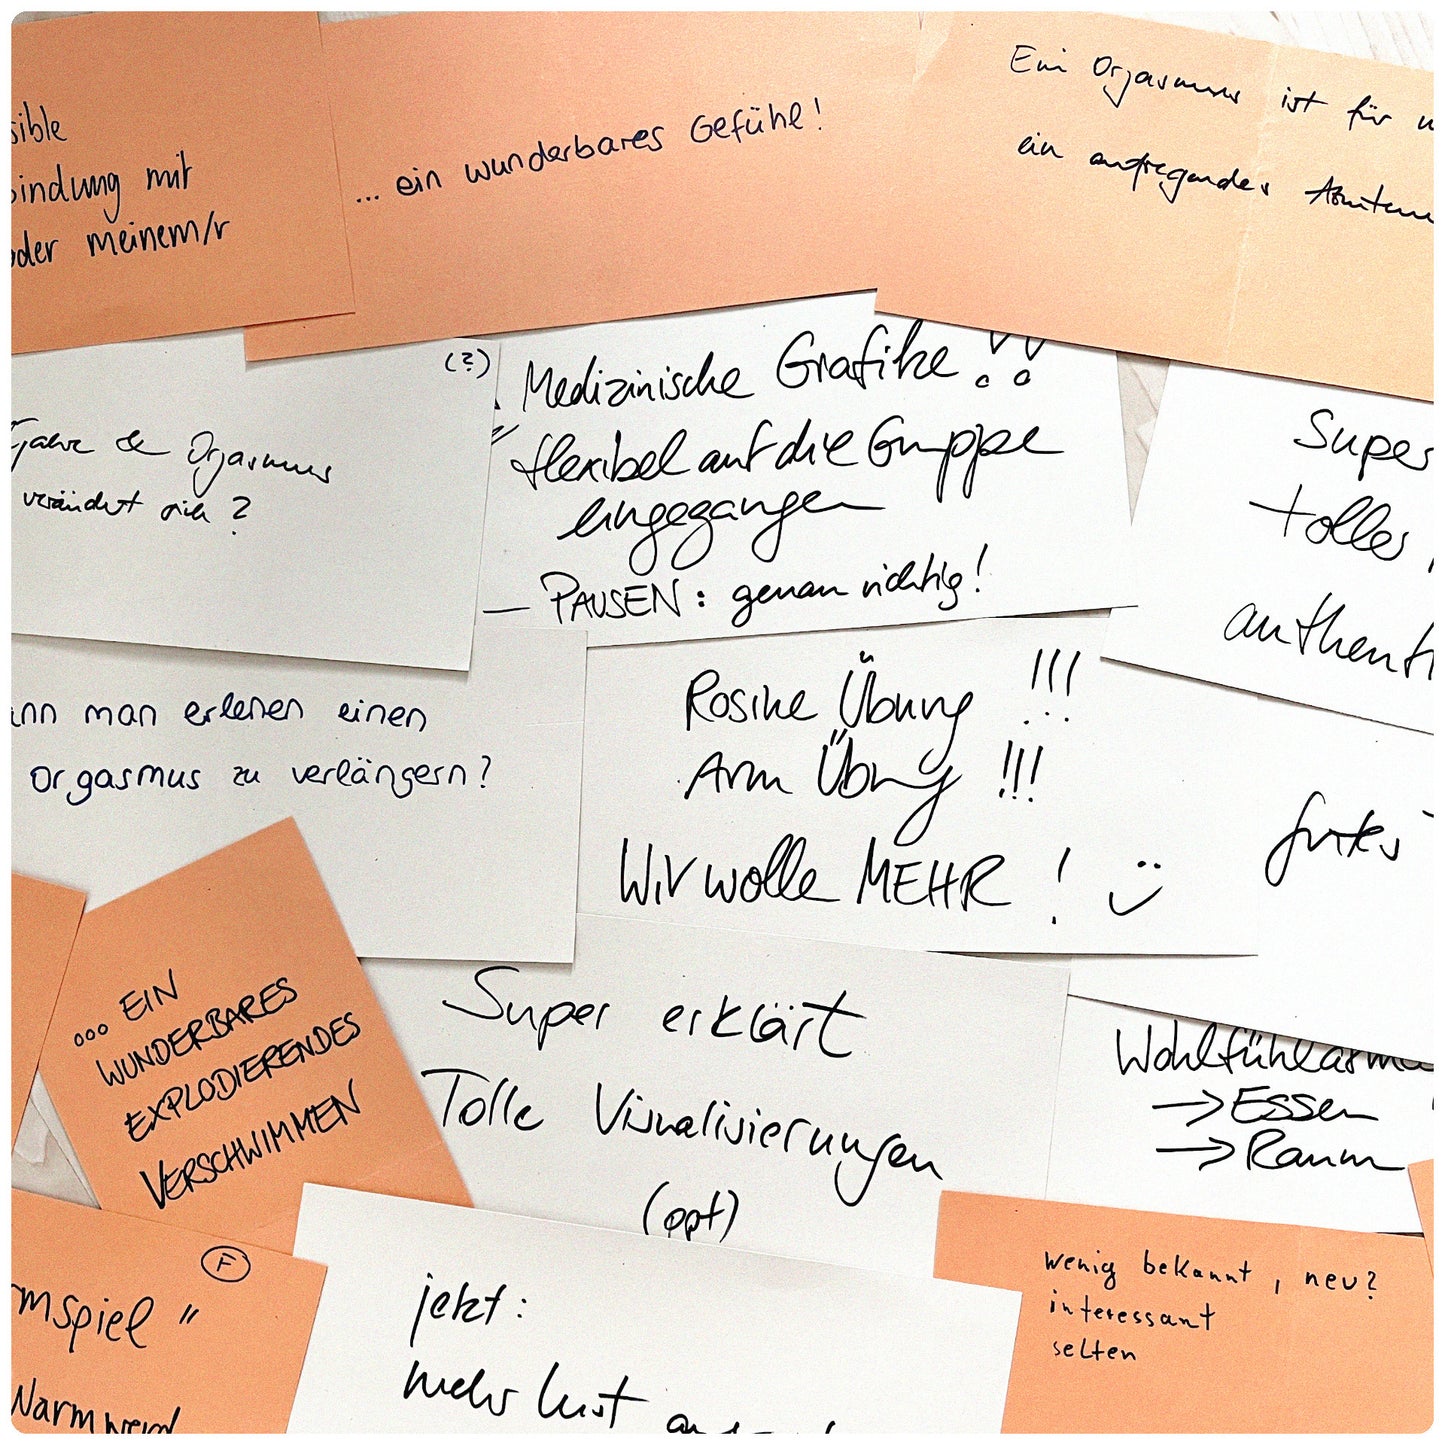 sible
bindung mit
oder meinem/r
... ein wunderbares Gefühl!
Ein Orgasmus ist für
ein aufregendes
(?)
Orgasmus
verändert sich?
Medizinische Grafike !!
flexibel auf die Gruppe
eingegangen
— PAUSEN: genau richtig!
Super
tolles
authent
ann man erlenen einen
orgasmus zu verlängern?
Rosine Übung !!!
Arm Übung !!!
Wir wolle MEHR! :)
gutes
... EIN
WUNDERBARES
EXPLODIERENDES
VERSCHWIMMEN
Super erklärt
Tolle Visualisierungen
(ppt)
Wohlfühlatm
→ Essen
→ Raum
F
mspiel"
Warmwerd
jetzt:
mehr lust
wenig bekannt, neu?
interessant
selten